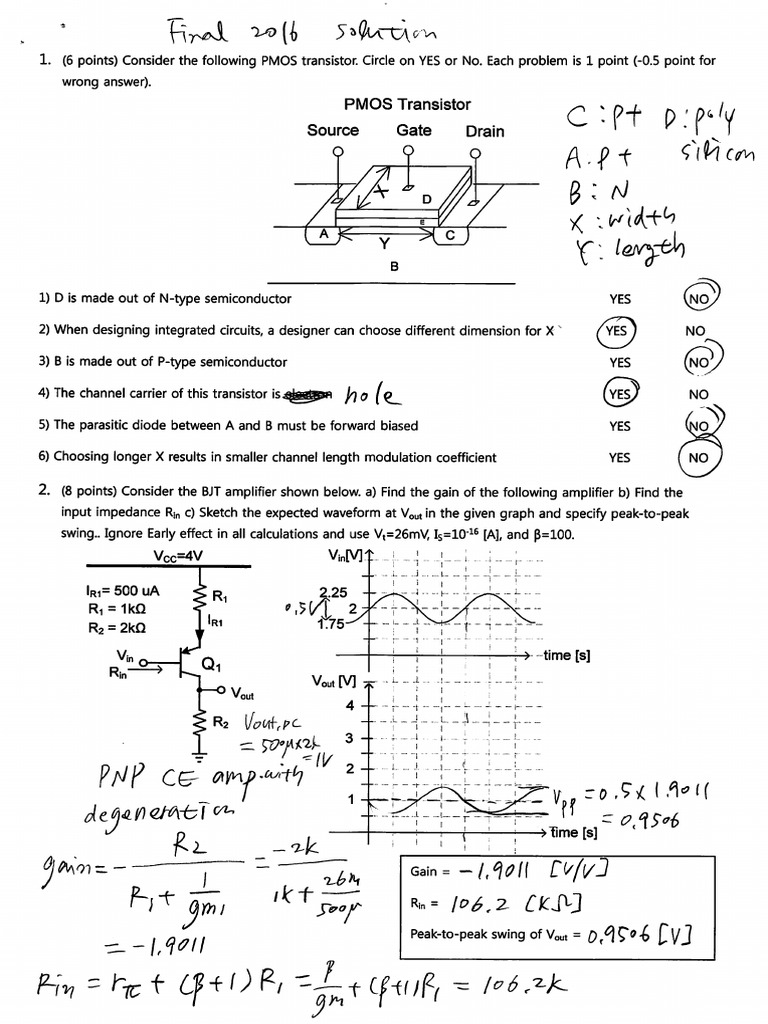 Final 2016 solution
1. (6 points) Consider the following PMOS transistor. Circle on YES or No. Each problem is 1 point (-0.5 point for
wrong answer).
PMOS Transistor
Source Gate Drain
X
D
E
A
Y
C
B
C : P+ D : poly
silicon
A. P+
B : N
X : width
Y : length
1) D is made out of N-type semiconductor YES NO
2) When designing integrated circuits, a designer can choose different dimension for X YES NO
3) B is made out of P-type semiconductor YES NO
4) The channel carrier of this transistor is hole YES NO
5) The parasitic diode between A and B must be forward biased YES NO
6) Choosing longer X results in smaller channel length modulation coefficient YES NO
2. (8 points) Consider the BJT amplifier shown below. a) Find the gain of the following amplifier b) Find the
input impedance Rin c) Sketch the expected waveform at Vout in the given graph and specify peak-to-peak
swing.. Ignore Early effect in all calculations and use Vt=26mV, IS=10-16 [A], and β=100.
VCC=4V
IR1= 500 uA
R1 = 1kΩ
R2 = 2kΩ
R1
IR1
Vin
Rin
Q1
Vout
R2
Vout,DC
= 500μ×2k
= 1V
PNP CE amp. with
degeneration
Vin[V]
2.25
0.5V 2
1.75
time [s]
Vout [V]
4
3
2
1
time [s]
Vpp = 0.5 × 1.9011
= 0.9506
gain = - R2 / (R1 + 1/gm1) = -2k / (1k + 26m/500μ)
= -1.9011
Rin = rπ + (β+1) R1 = β/gm1 + (β+1)R1 = 106.2k
Gain = -1.9011 [V/V]
Rin = 106.2 [kΩ]
Peak-to-peak swing of Vout = 0.9506 [V]